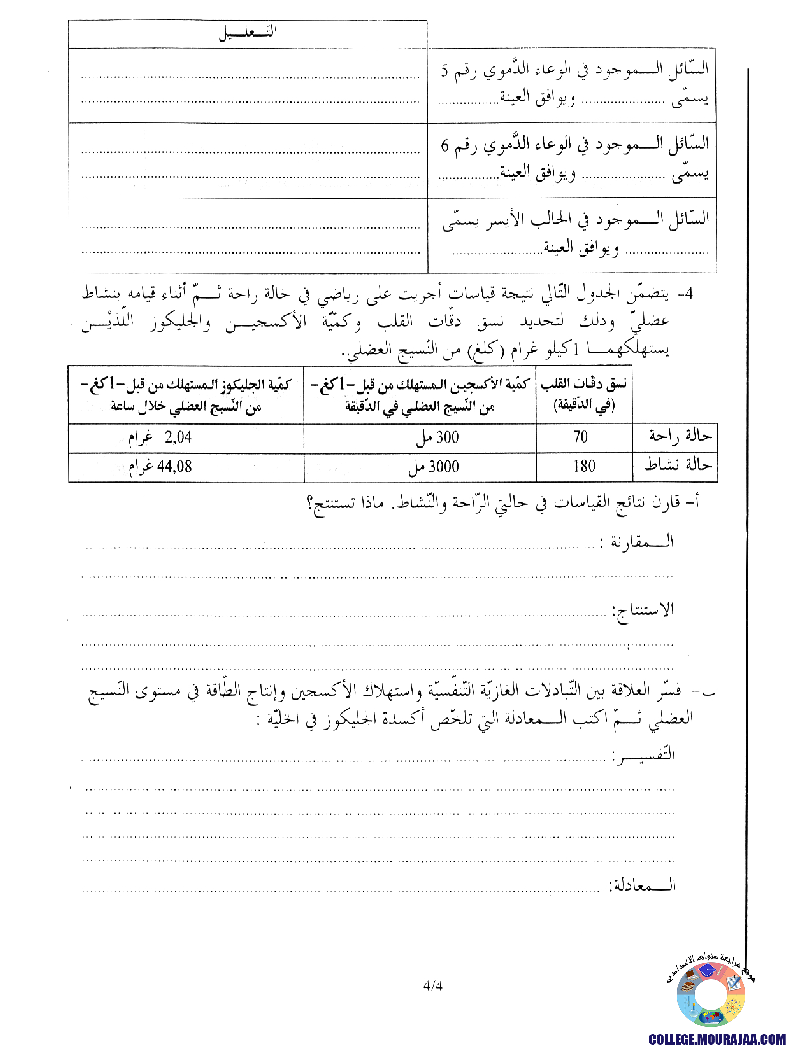 التـعـليـل
السّائل الـموجود في الوعاء الدّموي رقم 5
يسمّى ..................... ويوافق العينة................
السّائل الـموجود في الوعاء الدّموي رقم 6
يسمّى ..................... ويوافق العينة................
السّائل الـموجود في الحالب الأيسر يسمّى
..................... ويوافق العينة.......................
4- يتضمّن الجدول التّالي نتيجة قياسات أجريت على رياضي في حالة راحة ثـمّ أثناء قيامه بنشاط
عضليّ وذلك لتحديد نسق دقّات القلب وكميّة الأكسجيـن والجليكوز اللّذيْـن
يستهلكهمـا 1كيلو غرام (كلغ) من النّسيج العضلي.
نسق دقات القلب (في الدقيقة)
كميّة الأكسجيـن الـمستهلك من قبل -1كغ- من النّسيج العضلي في الدّقيقة
كميّة الجليكوز الـمستهلك من قبل -1كغ- من النّسيج العضلي خلال ساعة
حالة راحة 70 300 مل 2,04 غرام
حالة نشاط 180 3000 مل 44,08 غرام
أ- قارن نتائج القياسات في حالتي الرّاحة والنّشاط. ماذا تستنتج؟
الـمقارنة :
الاستنتاج:
ب- فسّر العلاقة بين التّبادلات الغازيّة التّنفّسيّة واستهلاك الأكسجين وإنتاج الطّاقة في مستوى النّسيج
العضلي ثـمّ اكتب الـمعادلة التي تلخّص أكسدة الجليكوز في الخليّة :
التّفسيـر:
الـمعادلة:
موقع مراجعة منهاج الاعدادي
4/4
COLLEGE.MOURAJAA.COM